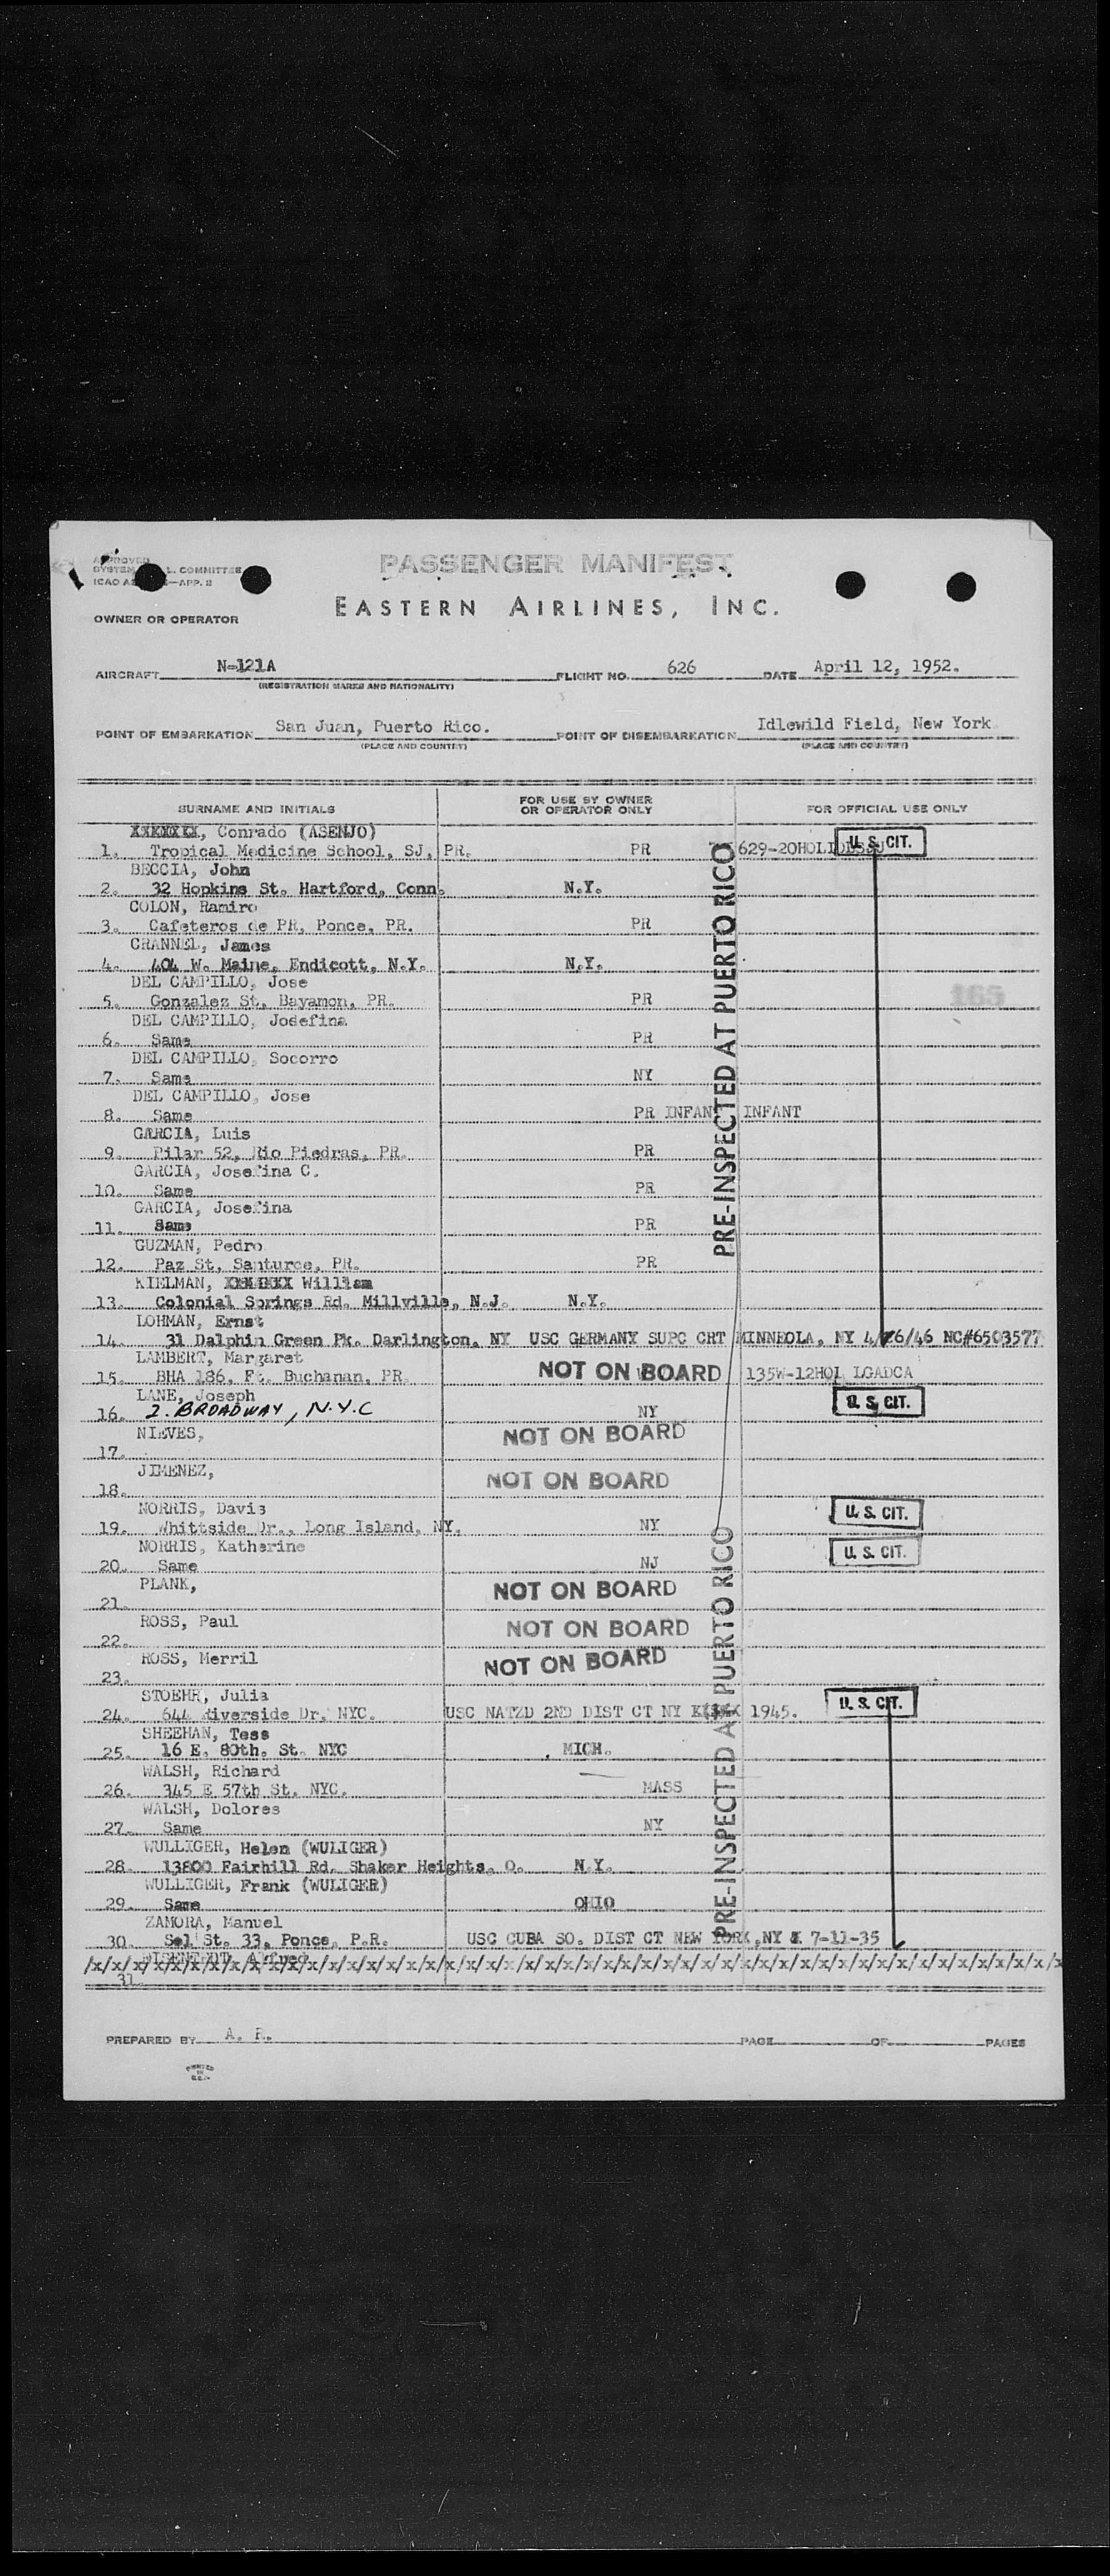 PASSENGER MANIFEST
EASTERN AIRLINES, INC.
APPROVED
SYSTEM L. COMMITTEE
ICAO —APP. 2
OWNER OR OPERATOR
AIRCRAFT N-121A FLIGHT NO. 626 DATE April 12, 1952.
(REGISTRATION MARKS AND NATIONALITY)
POINT OF EMBARKATION San Juan, Puerto Rico. POINT OF DISEMBARKATION Idlewild Field, New York
(PLACE AND COUNTRY) (PLACE AND COUNTRY)
SURNAME AND INITIALS FOR USE BY OWNER OR OPERATOR ONLY FOR OFFICIAL USE ONLY
Conrado (ASENJO)
1. Tropical Medicine School, SJ, PR. PR U. S. CIT.
BECCIA, John
2. 32 Hopkins St. Hartford, Conn. N.Y.
COLON, Ramiro
3. Cafeteros de PR, Ponce, PR. PR
CRANNEL, James
4. 404 W. Maine, Endicott, N.Y. N.Y.
DEL CAMPILLO, Jose
5. Gonzalez St. Bayamon, PR. PR
165
DEL CAMPILLO, Josefina
6. Same PR
DEL CAMPILLO, Socorro
7. Same NY
DEL CAMPILLO, Jose
8. Same PR INFANT INFANT
GARCIA, Luis
9. Pilar 52, Rio Piedras, PR. PR
GARCIA, Josefina C.
10. Same PR
GARCIA, Josefina
11. Same PR
GUZMAN, Pedro
12. Paz St, Santurce, PR. PR
PRE-INSPECTED AT PUERTO RICO
KIELMAN, William
13. Colonial Springs Rd. Millville, N.J. N.Y.
LOHMAN, Ernst
14. 31 Dalphin Green Pk. Darlington, NY USC GERMANY SUPC CRT MINNEOLA, NY NC#6503577
LAMBERT, Margaret
15. BHA 186, Ft. Buchanan, PR NOT ON BOARD 135W-12HOL LGADCA
LANE, Joseph
16. 2. BROADWAY, N.Y.C NY U. S. CIT.
NIEVES,
17. NOT ON BOARD
JIMENEZ,
18. NOT ON BOARD
NORRIS, Davis
19. Whittside Dr., Long Island, NY. NY U. S. CIT.
NORRIS, Katherine
20. Same NJ U. S. CIT.
PLANK,
21. NOT ON BOARD
ROSS, Paul
22. NOT ON BOARD
ROSS, Merril
23. NOT ON BOARD
STOEHR, Julia
24. 644 Riverside Dr. NYC. USC NATZD 2ND DIST CT NY 1945. U. S. CIT.
SHEEHAN, Tess
25. 16 E. 80th. St. NYC MICH.
WALSH, Richard
26. 345 E 57th St. NYC. MASS
WALSH, Dolores
27. Same NY
WULLIGER, Helen (WULIGER)
28. 13800 Fairhill Rd. Shaker Heights, O. N.Y.
WULLIGER, Frank (WULIGER)
29. Same OHIO
ZAMORA, Manuel
30. Sol St. 33, Ponce, P.R. USC CUBA SO. DIST CT NEW YORK,NY 7-11-35
PRE-INSPECTED AT PUERTO RICO
31.
PREPARED BY A. R. PAGE OF PAGES